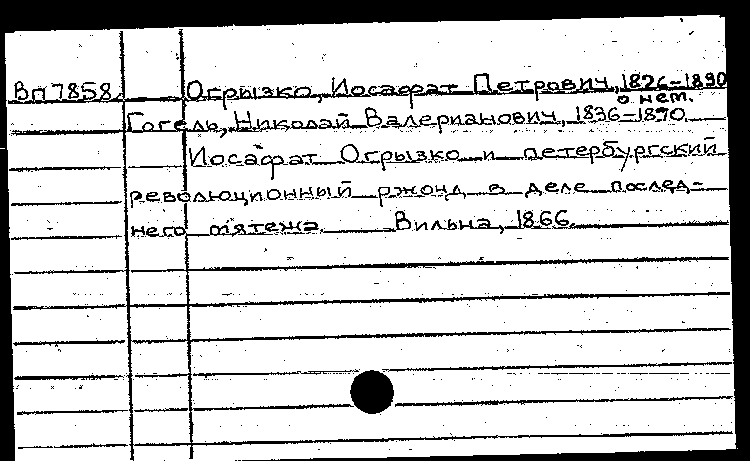 Вп7858. Огрызко, Иосафат Петрович, 1826-1890
о нем.
Гогель, Николай Валерианович, 1836-1870.
Иосафат Огрызко и петербургский
революционный ржонд в деле послед-
него мятежа. Вильна, 1866.